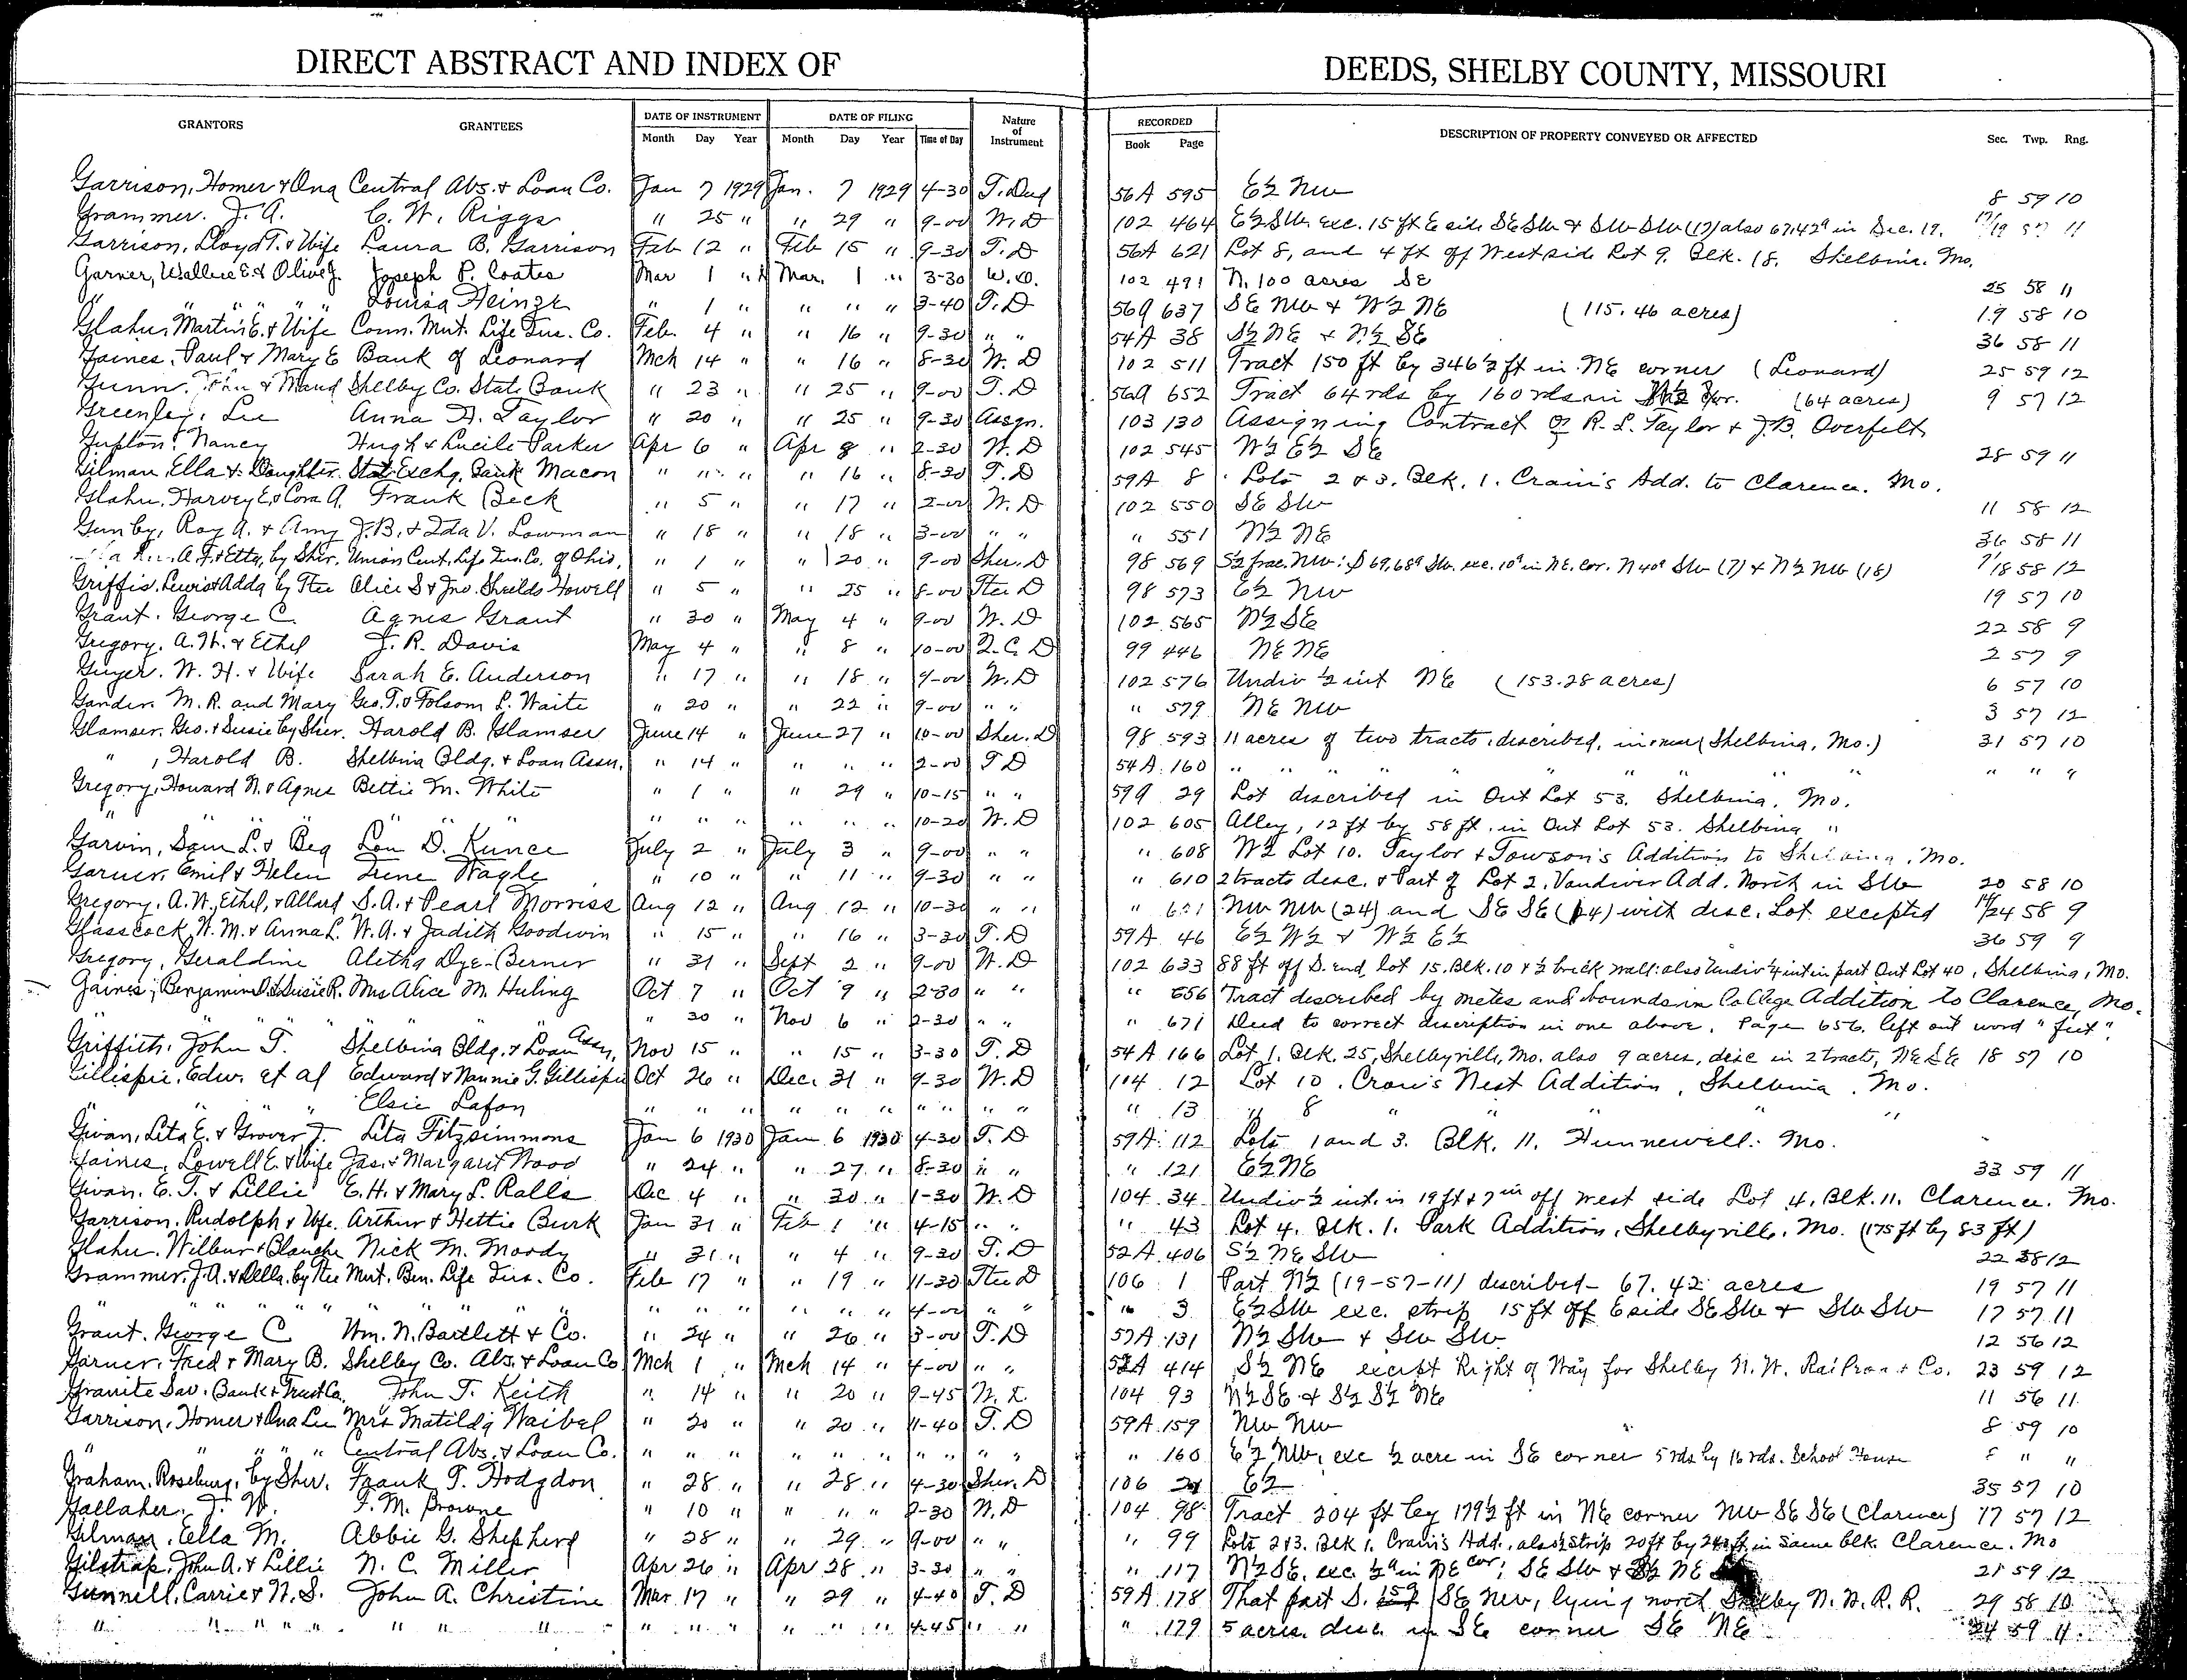 DIRECT ABSTRACT AND INDEX OF DEEDS, SHELBY COUNTY, MISSOURI
GRANTORS GRANTEES DATE OF INSTRUMENT DATE OF FILING Nature of Instrument RECORDED DESCRIPTION OF PROPERTY CONVEYED OR AFFECTED Sec. Twp. Rng.
Month Day Year Month Day Year Time of Day Book Page
Garrison, Homer & Ona Central Abs. & Loan Co. Jan 7 1929 Jan. 7 1929 4-30 T. Deed 56A 595 E½ NW 8 59 10
Grammer. J. A. C. W. Riggs " 25 " " 29 " 9-00 W. D 102 464 E½ SW. exc. 15 ft E side SE SW & SW SW (17) also 67.42ª in Sec. 19. 17/19 57 11
Garrison, Lloyd T. & Wife Laura B. Garrison Feb 12 " Feb 15 " 9-30 T. D 56A 621 Lot 8, and 4 ft off West side Lot 9. Blk. 18. Shelbina. Mo.
Garner, Wallace E. & Olive J. Joseph P. Coates Mar 1 " Mar. 1 " 3-30 W. D. 102 491 N. 100 acres SE 25 58 11
" " " " " Louisa Heinze " 1 " " " " 3-40 T. D 56A 637 SE NW & W½ NE (115.46 acres) 19 58 10
Glahn, Martin E. & Wife Conn. Mut. Life Ins. Co. Feb. 4 " " 16 " 9-30 " " 54A 38 S½ NE & N½ SE 36 58 11
Gaines, Paul & Mary E Bank of Leonard Mch 14 " " 16 " 8-30 W. D 102 511 Tract 150 ft by 346½ ft in NE corner (Leonard) 25 59 12
Gunn. John & Maud Shelby Co. State Bank " 23 " " 25 " 9-00 T. D 56A 652 Tract 64 rds by 160 rds in (64 acres) 9 57 12
Greenley, Lee Anna H. Taylor " 20 " " 25 " 9-30 Assgn. 103 130 Assigning Contract of R. L. Taylor & J. B. Overfelt
Gupton. Nancy Hugh & Lucile Parker Apr 6 " Apr 8 " 2-30 W. D 102 545 W½ E½ SE 28 59 11
Gilman Ella & Daughter. State Exchg. Bank Macon " " " " 16 " 8-30 T. D 59A 8 Lots 2 & 3. Blk. 1. Crain's Add. to Clarence. Mo.
Glahn, Harvey E. & Cora A. Frank Beck " 5 " " 17 " 2-00 W. D 102 550 SE SW 11 58 12
Gunby, Roy A. & Amy J. B. & Ida V. Lowman " 18 " " 18 " 3-00 " " " 551 N½ NE 36 58 11
A. F. & Etta, by Sher. Union Cent. Life Ins. Co. of Ohio, " 1 " " 20 " 9-00 Sher. D 98 569 S½ frac. NW: & 69.68ª SW. exc. 10ª in NE. cor. N 40ª SW (7) & N½ NW (18) 7/18 58 12
Griffis, Lewis & Adda by Tree Alice S & Jno. Shields Howell " 5 " " 25 " 8-00 Tree D 98 573 E½ NW 19 57 10
Grant. George C. Agnes Grant " 30 " May 4 " 9-00 W. D 102 565 N½ SE 22 58 9
Gregory. A. W. & Ethel J. R. Davis May 4 " " 8 " 10-00 Q. C. D 99 446 NE NE 2 57 9
Guyer. W. H. & Wife Sarah E. Anderson " 17 " " 18 " 4-00 W. D 102 576 Undiv ½ int NE (153.28 acres) 6 57 10
Gander. M. R. and Mary Geo. T. & Folsom L. Waite " 20 " " 22 " 9-00 " " " 579 NE NW 3 57 12
Glamser. Geo. & Susie by Sher. Harold B. Glamser June 14 " June 27 " 10-00 Sher. D 98 593 11 acres of two tracts, described, in & near (Shelbina, Mo.) 31 57 10
" , Harold B. Shelbina Bldg. & Loan Assn. " 14 " " " " 2-00 T D 54A 160 " " " " " " " " " " "
Gregory, Howard N. & Agnes Bettie M. White " 1 " " 29 " 10-15 " " 59A 29 Lot described in Out Lot 53. Shelbina. Mo.
" " " " " " " " " " " 10-20 W. D 102 605 Alley, 12 ft by 58 ft. in Out Lot 53. Shelbina "
Garvin, Sam L. & Bea Lou D. Kunce July 2 " July 3 " 9-00 " " " 608 W½ Lot 10. Taylor & Towson's Addition to Shelbina, Mo.
Garner, Emil & Helen Irene Nagle " 10 " " 11 " 9-30 " " " 610 2 tracts desc. & Part of Lot 2. Vandiver Add. North in SW 20 58 10
Gregory. A. W, Ethel, & Allard S. A. & Pearl Morriss Aug 12 " Aug 12 " 10-30 " " " 621 NW NW (24) and SE SE (14) with desc. Lot excepted 14/24 58 9
Glasscock, W. M. & Anna L. W. A. & Judith Goodwin " 15 " " 16 " 3-30 T. D 59A 46 E½ W½ & W½ E½ 36 59 9
Gregory, Geraldine Aletha Dye-Berner " 31 " Sept 2 " 9-00 W. D 102 633 88 ft off S. end, lot 15. Blk. 10 & ½ brick wall: also Undiv ¼ int in part Out Lot 40, Shelbina, Mo.
Gaines, Benjamin D. & Susie R. Mrs Alice M. Huling Oct 7 " Oct 9 " 2-30 " " " 656 Tract described by metes and bounds in College Addition to Clarence, Mo.
" " " " " " " 30 " Nov 6 " 2-30 " " " 671 Deed to correct description in one above. Page 656. left out word "feet".
Griffith. John T. Shelbina Bldg. & Loan Assn. Nov 15 " " 15 " 3-30 T. D 54A 166 Lot 1. Blk. 25, Shelbyville, Mo. also 9 acres, desc in 2 tracts, NE SE 18 57 10
Gillispie, Edw. et al Edward & Nannie G. Gillispie Oct 26 " Dec. 31 " 9-30 W. D 104 12 Lot 10. Crow's Nest Addition, Shelbina. Mo.
" " " " Elsie Lafon " " " " " " " " " " " 13 " 8 " " " "
Givan, Lita E. & Grover J. Lita Fitzsimmons Jan 6 1930 Jan 6 1930 4-30 T. D 59A 112 Lots 1 and 3. Blk. 11. Hunnewell. Mo.
Gaines, Lowell E. & Wife Jas. & Margaret Wood " 24 " " 27 " 8-30 " " " 121 E½ NE 33 59 11
Givan. E. T. & Lillie E. H. & Mary L. Ralls Dec 4 " " 30 " 1-30 W. D 104 34 Undiv ½ int. in 19 ft & 7 in off west side Lot 4. Blk. 11. Clarence. Mo.
Garrison. Rudolph & Wfe. Arthur & Hettie Burk Jan 31 " Feb 1 " 4-15 " " " 43 Lot 4. Blk. 1. Park Addition, Shelbyville, Mo. (175 ft by 83 ft)
Glahn. Wilbur & Blanche Nick M. Moody " 31 " " 4 " 9-30 T. D 52A 406 S½ NE SW 22 58 12
Grammer. J. A. & Della. by Tree Mut. Ben. Life Ins. Co. Feb 17 " " 19 " 11-30 Tree D 106 1 Part N½ (19-57-11) described - 67.42 acres 19 57 11
" " " " " " " " " " " " " " 4-00 " " " 3 E½ SW exc. strip 15 ft off E side SE SW & SW SW 17 57 11
Grant. George C Wm. N. Bartlett & Co. " 24 " " 26 " 3-00 T. D 57A 131 N½ SW & SW SW 12 56 12
Garner, Fred & Mary B. Shelby Co. Abs. & Loan Co Mch 1 " Mch 14 " 4-00 " " 52A 414 S½ NE except Right of Way for Shelby N. W. Railroad Co. 23 59 12
Granite Sav. Bank & Trust Co. John T. Keith " 14 " " 20 " 9-45 W. D. 104 93 N½ SE & S½ S½ NE 11 56 11
Garrison, Homer & Ona Lee Mrs Matilda Waibel " 20 " " 20 " 11-40 T. D 59A 159 NW NW 8 59 10
" " " " " Central Abs. & Loan Co. " " " " " " " " " " " 160 E½ NW, exc ½ acre in SE corner 5 rds by 16 rds. School House 8 " "
Graham, Roseburg, by Sher. Frank T. Hodgdon " 28 " " 28 " 4-30 Sher. D 106 21 E½ 35 57 10
Gallaher, J. W. F. M. Browne " 10 " " " " 2-30 W. D 104 98 Tract 204 ft by 179½ ft in NE corner NW SE SE (Clarence) 17 57 12
Gilman, Ella M. Abbie G. Shepherd " 28 " " 29 " 9-00 " " " 99 Lots 2 & 3. Blk 1. Crain's Add., also strip 20 ft by ft. in same blk. Clarence. Mo
Gilstrap. John A. & Lillie N. C. Miller Apr 26 " Apr 28 " 3-30 " " " 117 N½ SE. exc. ½ª in NE cor; SE SW & NE 21 59 12
Gunnell, Carrie & N. S. John A. Christine Mar 17 " " 29 " 4-40 T. D 59A 178 That part S. SE NW, lying north Shelby N. W. R. R. 29 58 10
" " " " " " " " " " " " " " 4-45 " " " 179 5 acres. desc. in SE corner SE NE 24 59 11